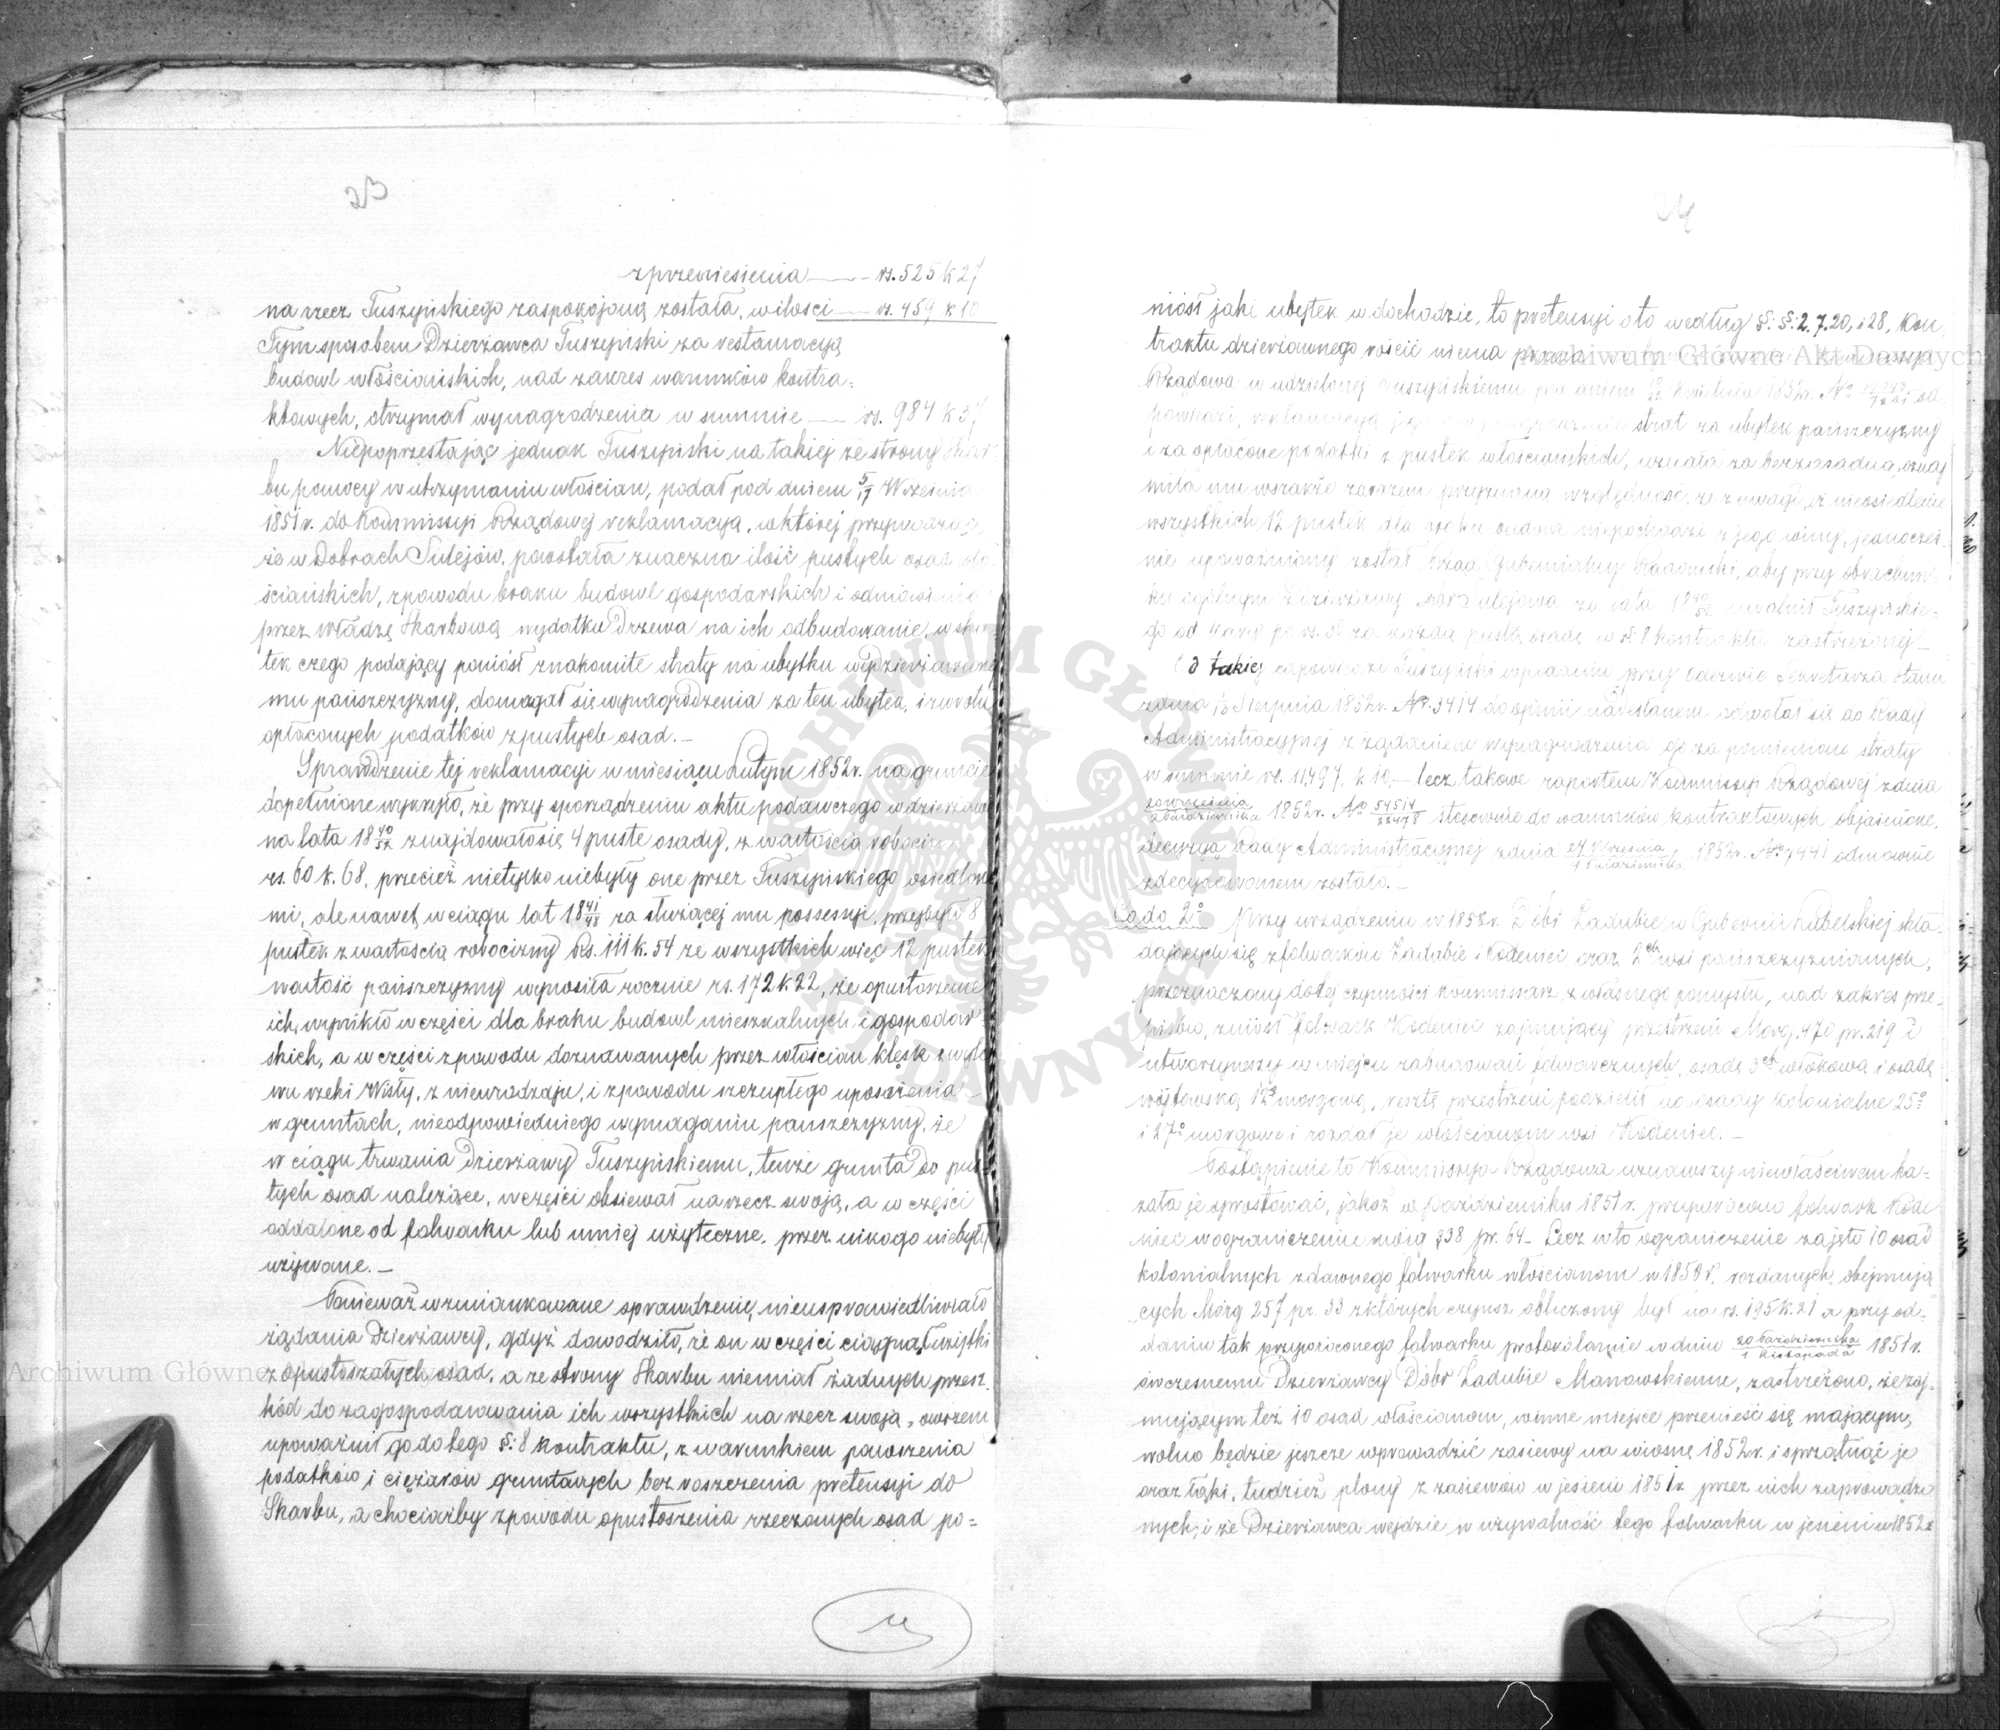 23
zprzeniesienia — rs. 525 k 27
na rzecz Tuszyńskiego zaspokojoną została, w ilości — rs. 459 k 10
Tym sposobem Dzierżawca Tuszyński za restauracyą
budowl włościańskich, nad zakres warunków kontra-
ktowych, otrzymał wynagrodzenia w summie — rs. 984 k 37
Niepoprzestając jednak Tuszyński na takiej ze strony Skar
bu pomocy w utrzymaniu włościan, podał pod dniem 5/17 Września
1851 r. do Kommissyi Rządowej reklamacyą, w której przywodząc,
że w Dobrach Sulejów, powstała znaczna ilość pustych osad wło
ściańskich, z powodu braku budowl gospodarskich i odmówienia
przez władzę Skarbową wydatku drzewa na ich odbudowanie, w sku
tek czego podający poniósł znakomite straty na ubytku wydzierżawionej
mu pańszczyzny, domagał się wynagrodzenia za ten ubytek, i zwrotu
opłaconych podatków z pustych osad. —
Sprawdzenie tej reklamacyi w miesiącu Lutym 1852 r. na gruncie
dopełnione wykryło, że przy sporządzeniu aktu podawczego w dzierżawę
na lata 18 40/52 znajdowało się 4 puste osady, z wartością robocizny
rs. 60 k. 68, przecież nietylko niebyły one przez Tuszyńskiego osiedlone
mi, ale nawet w ciągu lat 18 41/48 za służącej mu possessyi, przybyło 8
pustek z wartością robocizny Rs. 111 k. 54 ze wszystkich więc 12 pustek
wartość pańszczyzny wynosiła rocznie rs. 172 k 22, że opustoszenie
ich, wynikło w części dla braku budowl mieszkalnych i gospodar
skich, a w części z powodu doznawanych przez włościan klęsk z wyle
wu rzeki Wisły, z nieurodzaju, i z powodu szczupłego uposażenia
w gruntach, nieodpowiedniego wymaganiu pańszczyzny, że
w ciągu trwania dzierżawy Tuszyńskiemu, tenże grunta do pus-
tych osad należące, w części obsiewał na rzecz swoją, a w części
oddalone od folwarku lub mniej użyteczne, przez nikogo niebyły
używane. —
Ponieważ wzmiankowane sprawdzenie, nieusprawiedliwiało
żądania Dzierżawcy, gdyż dowodziło, że on w części ciągnął użytki
z opustoszałych osad, a ze strony Skarbu niemiał żadnych przesz-
kód do zagospodarowania ich wszystkich na rzecz swoją, owszem
upoważnił go do tego §: 8 Kontraktu, z warunkiem ponoszenia
podatków i ciężarów gruntowych bez roszczenia pretensyi do
Skarbu, a chociażby z powodu opustoszenia rzeczonych osad po=
niósł jaki ubytek w dochodzie, to pretensyi o to według §: §: 2. 7. 20, i 28, Kon
traktu dzierżawnego rościć niema prawa
Rządowa w udzielonej Tuszyńskiemu pod dniem Kwietnia 1852 r. No od
powiedzi, reklamacyą jego strat za ubytek pańszczyzny
i za opłacone podatki z pustek włościańskich, uznała za bezzasadną, oznaj
miła mu wszakże zarazem przyznaną względność, że z uwagi, iż nieosiedlenie
wszystkich 12 pustek dla braku budowl niepochodzi z jego winy, jednocześ-
nie upoważniony został Rząd Gubernialny Radomski, aby przy obrachun-
ku ogólnym Dzierżawy Dóbr Sulejowa za lata 18 40/52 uwolnił Tuszyńskie-
go od kary po rs. 30 za każdą pustą osadę w §: 8 kontraktu zastrzeżonej —
Od takiej odpowiedzi Tuszyński w podaniu przy odezwie Sekretarza Stanu
z dnia Sierpnia 1852 r. No. 3414 do opinii nadesłanem odwołał się do Rady
Administracyjnej z żądaniem wynagrodzenia go za pomienione straty
w summie rs. 11,497. k 10, — lecz takowe raportem Kommissyi Rządowej z dnia
20 Września/2 Października 1852 r. No 54514/22478 stosownie do warunków kontraktowych objaśnione,
decyzyą Rady Administracyjnej z dnia Września/Października 1852 r. No. 7441 odmownie
zdecydowanem zostało. —
Co do 2o Przy urządzeniu w 1850 r. Dóbr Żadubie w Gubernii Lubelskiej skła-
dających się z folwarków Żadubie i Kodeniec oraz 2ch wsi pańszczyznianych,
przeznaczony do tej czynności Kommissarz, z własnego pomysłu, nad zakres prze-
pisów, zniósł folwark Kodeniec zajmujący przestrzeni Morg. 470 pr. 219 i
utworzywszy w miejscu zabudowań folwarcznych, osadę 3ch włókową i osadę
wójtowską 12o morgową, resztę przestrzeni podzielił na osady kolonialne 25o
i 27o morgowe i rozdał je włościanom wsi Kodeniec. —
Postąpienie to Kommissya Rządowa uznawszy niewłaściwem ka-
zała je sprostować, jakoż w Październiku 1851 r. przywrócono folwark Kode
niec w ograniczeniu morg 338 pr. 64 — Lecz w to ograniczenie zajęto 10 osad
kolonialnych z dawnego folwarku włościanom w 1850 r. rozdanych, obejmują
cych Morg 257 pr. 33 z których czynsz obliczony był na rs. 195 k. 21 a przy od-
daniu tak przywróconego folwarku protokólarnie w dniu 20 Października/1 Listopada 1851 r.
ówczesnemu Dzierżawcy Dóbr Żadubie Manowskiemu, zastrzeżono, że zaj-
mującym też 10 osad włościanom, w inne miejsce przenieść się mającym,
wolno będzie jeszcze wprowadzić zasiewy na wiosnę 1852 r. i sprzątnąć je
oraz łąki, tudzież plony z zasiewów w jesieni 1851 r. przez nich zaprowadzo
nych, i że Dzierżawca wejdzie w używalność tego folwarku w jesieni w 1852 r.
Archiwum Główne Akt Dawnych
Archiwum Główne
ARCHIWUM GŁÓWNE AKT DAWNYCH